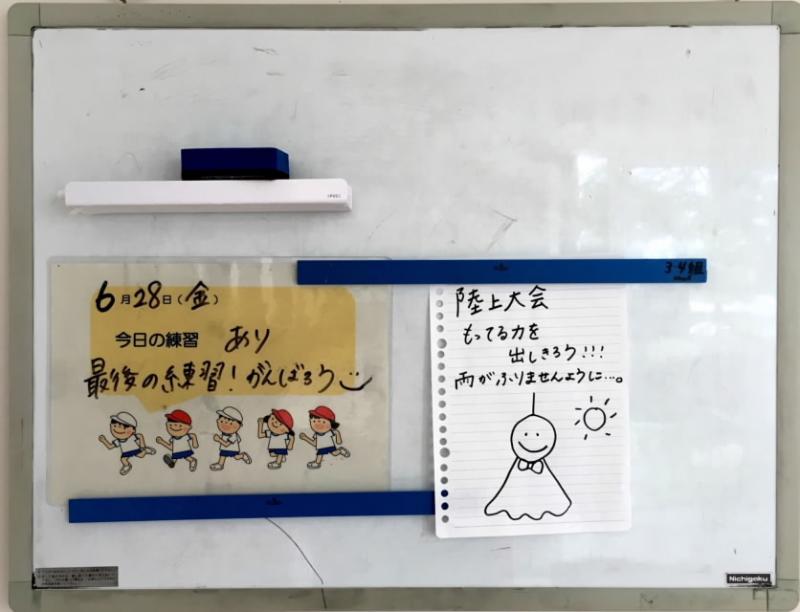 3-4組
6月28日(金)
今日の練習 あり
最後の練習!がんばろう
陸上大会
もってる力を
出しきろう!!!
雨がふりませんように…。
Nichigaku